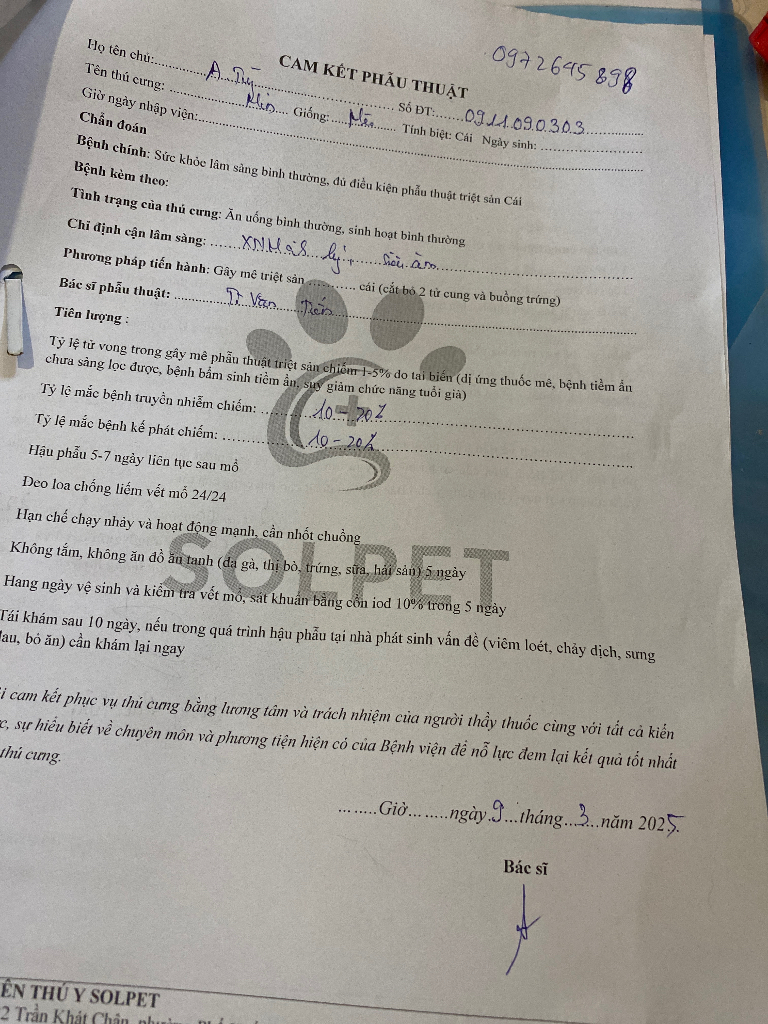 0972645898
CAM KẾT PHẪU THUẬT
Họ tên chủ:............ A. ............ Số ĐT:......0911.090.303............
Tên thú cưng: ............ Giống:...... Mèo ...... Tính biệt: Cái Ngày sinh: ............
Giờ ngày nhập viện:............
Chẩn đoán
Bệnh chính: Sức khỏe lâm sàng bình thường, đủ điều kiện phẫu thuật triệt sản Cái
Bệnh kèm theo:
Tình trạng của thú cưng: Ăn uống bình thường, sinh hoạt bình thường
Chỉ định cận lâm sàng: ...... lý, siêu âm............
Phương pháp tiến hành: Gây mê triệt sản ............ cái (cắt bỏ 2 tử cung và buồng trứng)
Bác sĩ phẫu thuật: ............ Văn Tiến ............
Tiên lượng :
Tỷ lệ tử vong trong gây mê phẫu thuật triệt sản chiếm 1-5% do tai biến (dị ứng thuốc mê, bệnh tiềm ẩn
chưa sàng lọc được, bệnh bẩm sinh tiềm ẩn, suy giảm chức năng tuổi già)
Tỷ lệ mắc bệnh truyền nhiễm chiếm: ............10-20%............
Tỷ lệ mắc bệnh kế phát chiếm: ............10-20%............
Hậu phẫu 5-7 ngày liên tục sau mổ
Đeo loa chống liếm vết mổ 24/24
Hạn chế chạy nhảy và hoạt động mạnh, cần nhốt chuồng
SOLPET
Không tắm, không ăn đồ ăn tanh (da gà, thị bò, trứng, sữa, hải sản) 5 ngày
Hang ngày vệ sinh và kiểm tra vết mổ, sát khuẩn bằng cồn iod 10% trong 5 ngày
Tái khám sau 10 ngày, nếu trong quá trình hậu phẫu tại nhà phát sinh vấn đề (viêm loét, chảy dịch, sưng
đau, bỏ ăn) cần khám lại ngay
i cam kết phục vụ thú cưng bằng lương tâm và trách nhiệm của người thầy thuốc cùng với tất cả kiến
c, sự hiểu biết về chuyên môn và phương tiện hiện có của Bệnh viện để nỗ lực đem lại kết quả tốt nhất
thú cưng.
........Giờ........ngày.9...tháng...3...năm 2025.
Bác sĩ
ỆN THÚ Y SOLPET
2 Trần Khát Chân,